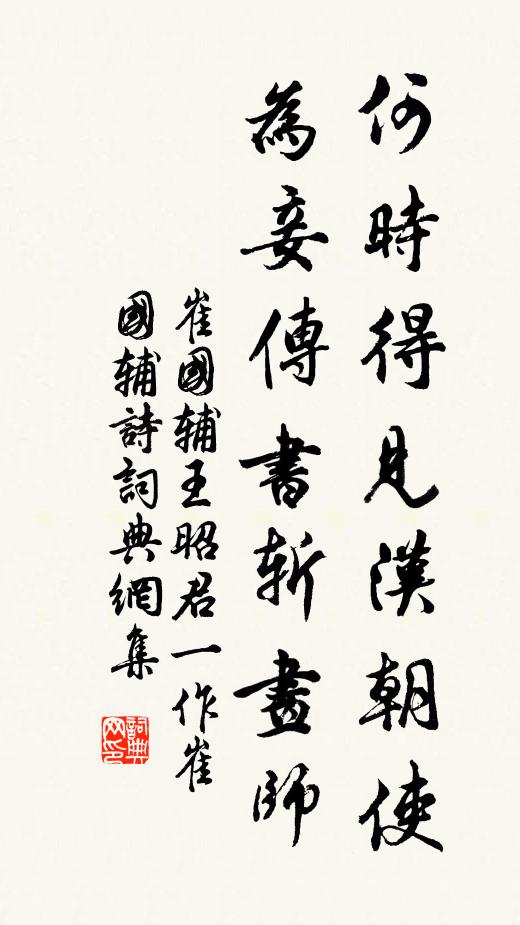 何時得見漢朝使
為妾傳書斬畫師
崔國辅王昭君一作崔
國辅詩詞典網集
詞典网印